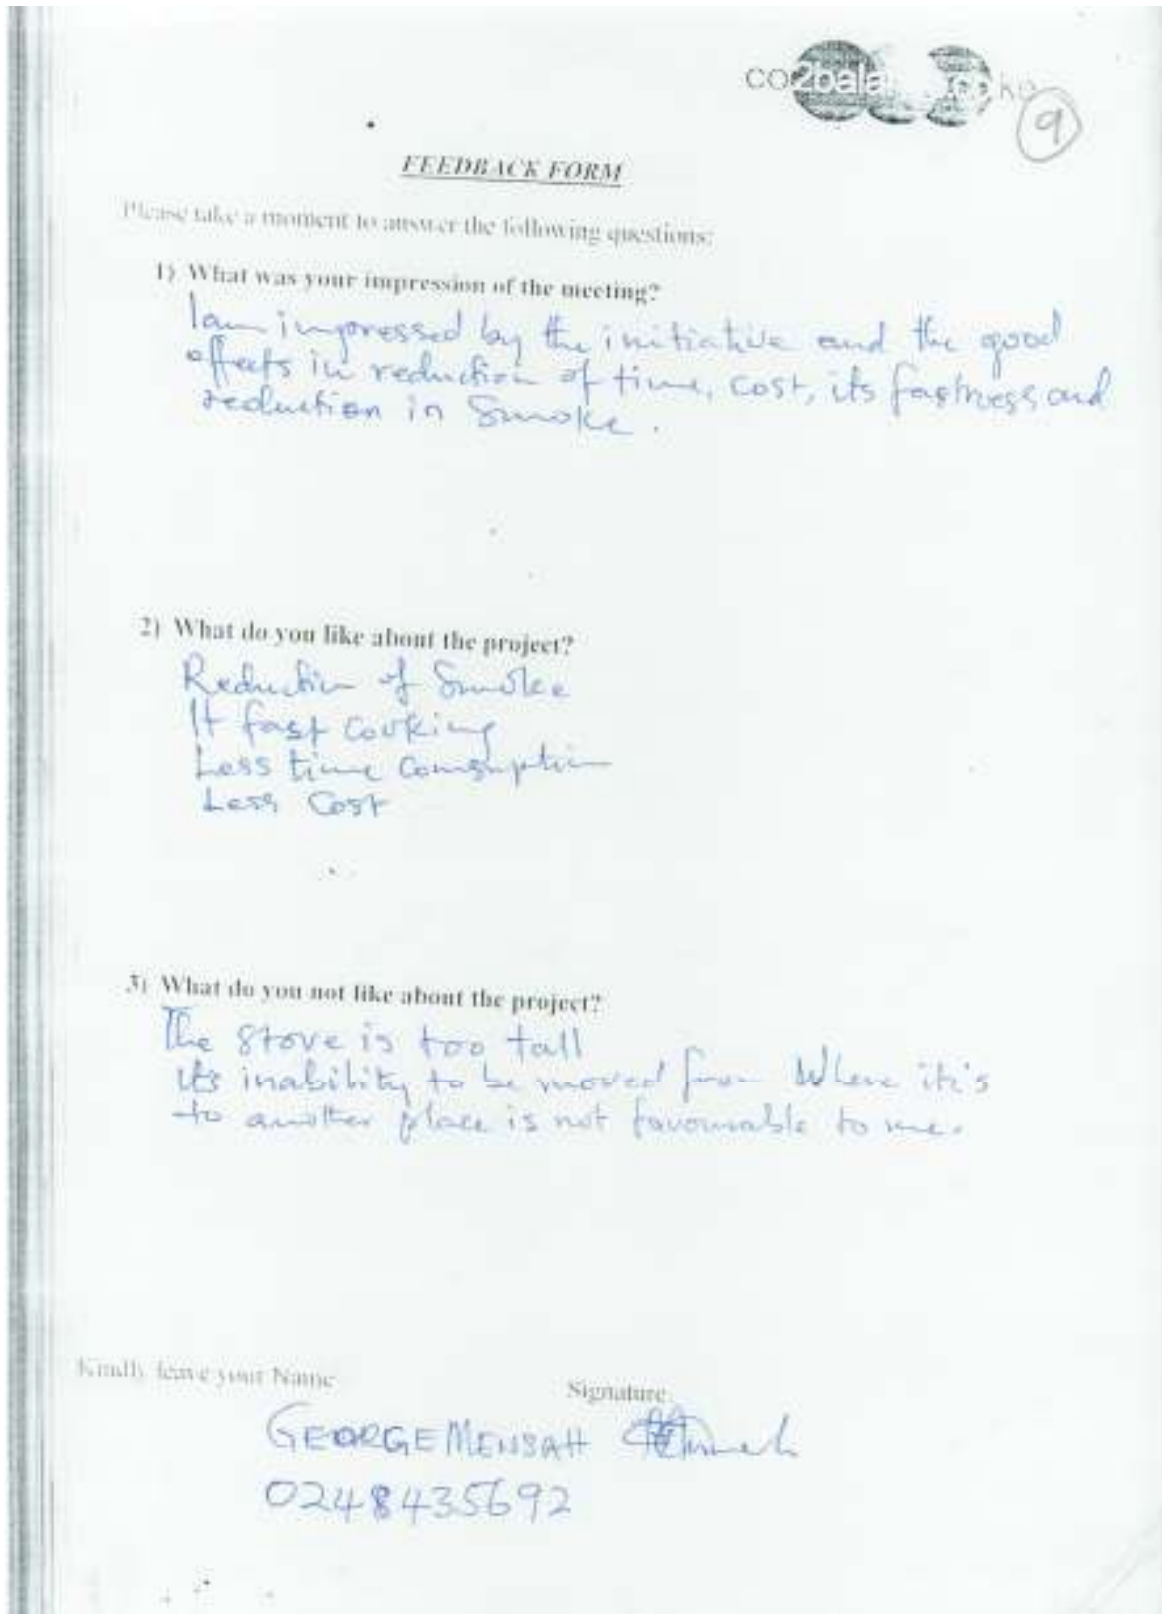 co2balance
9
FEEDBACK FORM
Please take a moment to answer the following questions:
1) What was your impression of the meeting?
I am impressed by the initiative and the good
effects in reduction of time, cost, its fastness and
reduction in Smoke.
2) What do you like about the project?
Reduction of Smoke
It fast cooking
Less time Consumption
Less Cost
3) What do you not like about the project?
The stove is too tall
its inability to be moved from Where it's
to another place is not favourable to me.
Kindly leave your Name
Signature
GEORGE MENSAH
0248435692